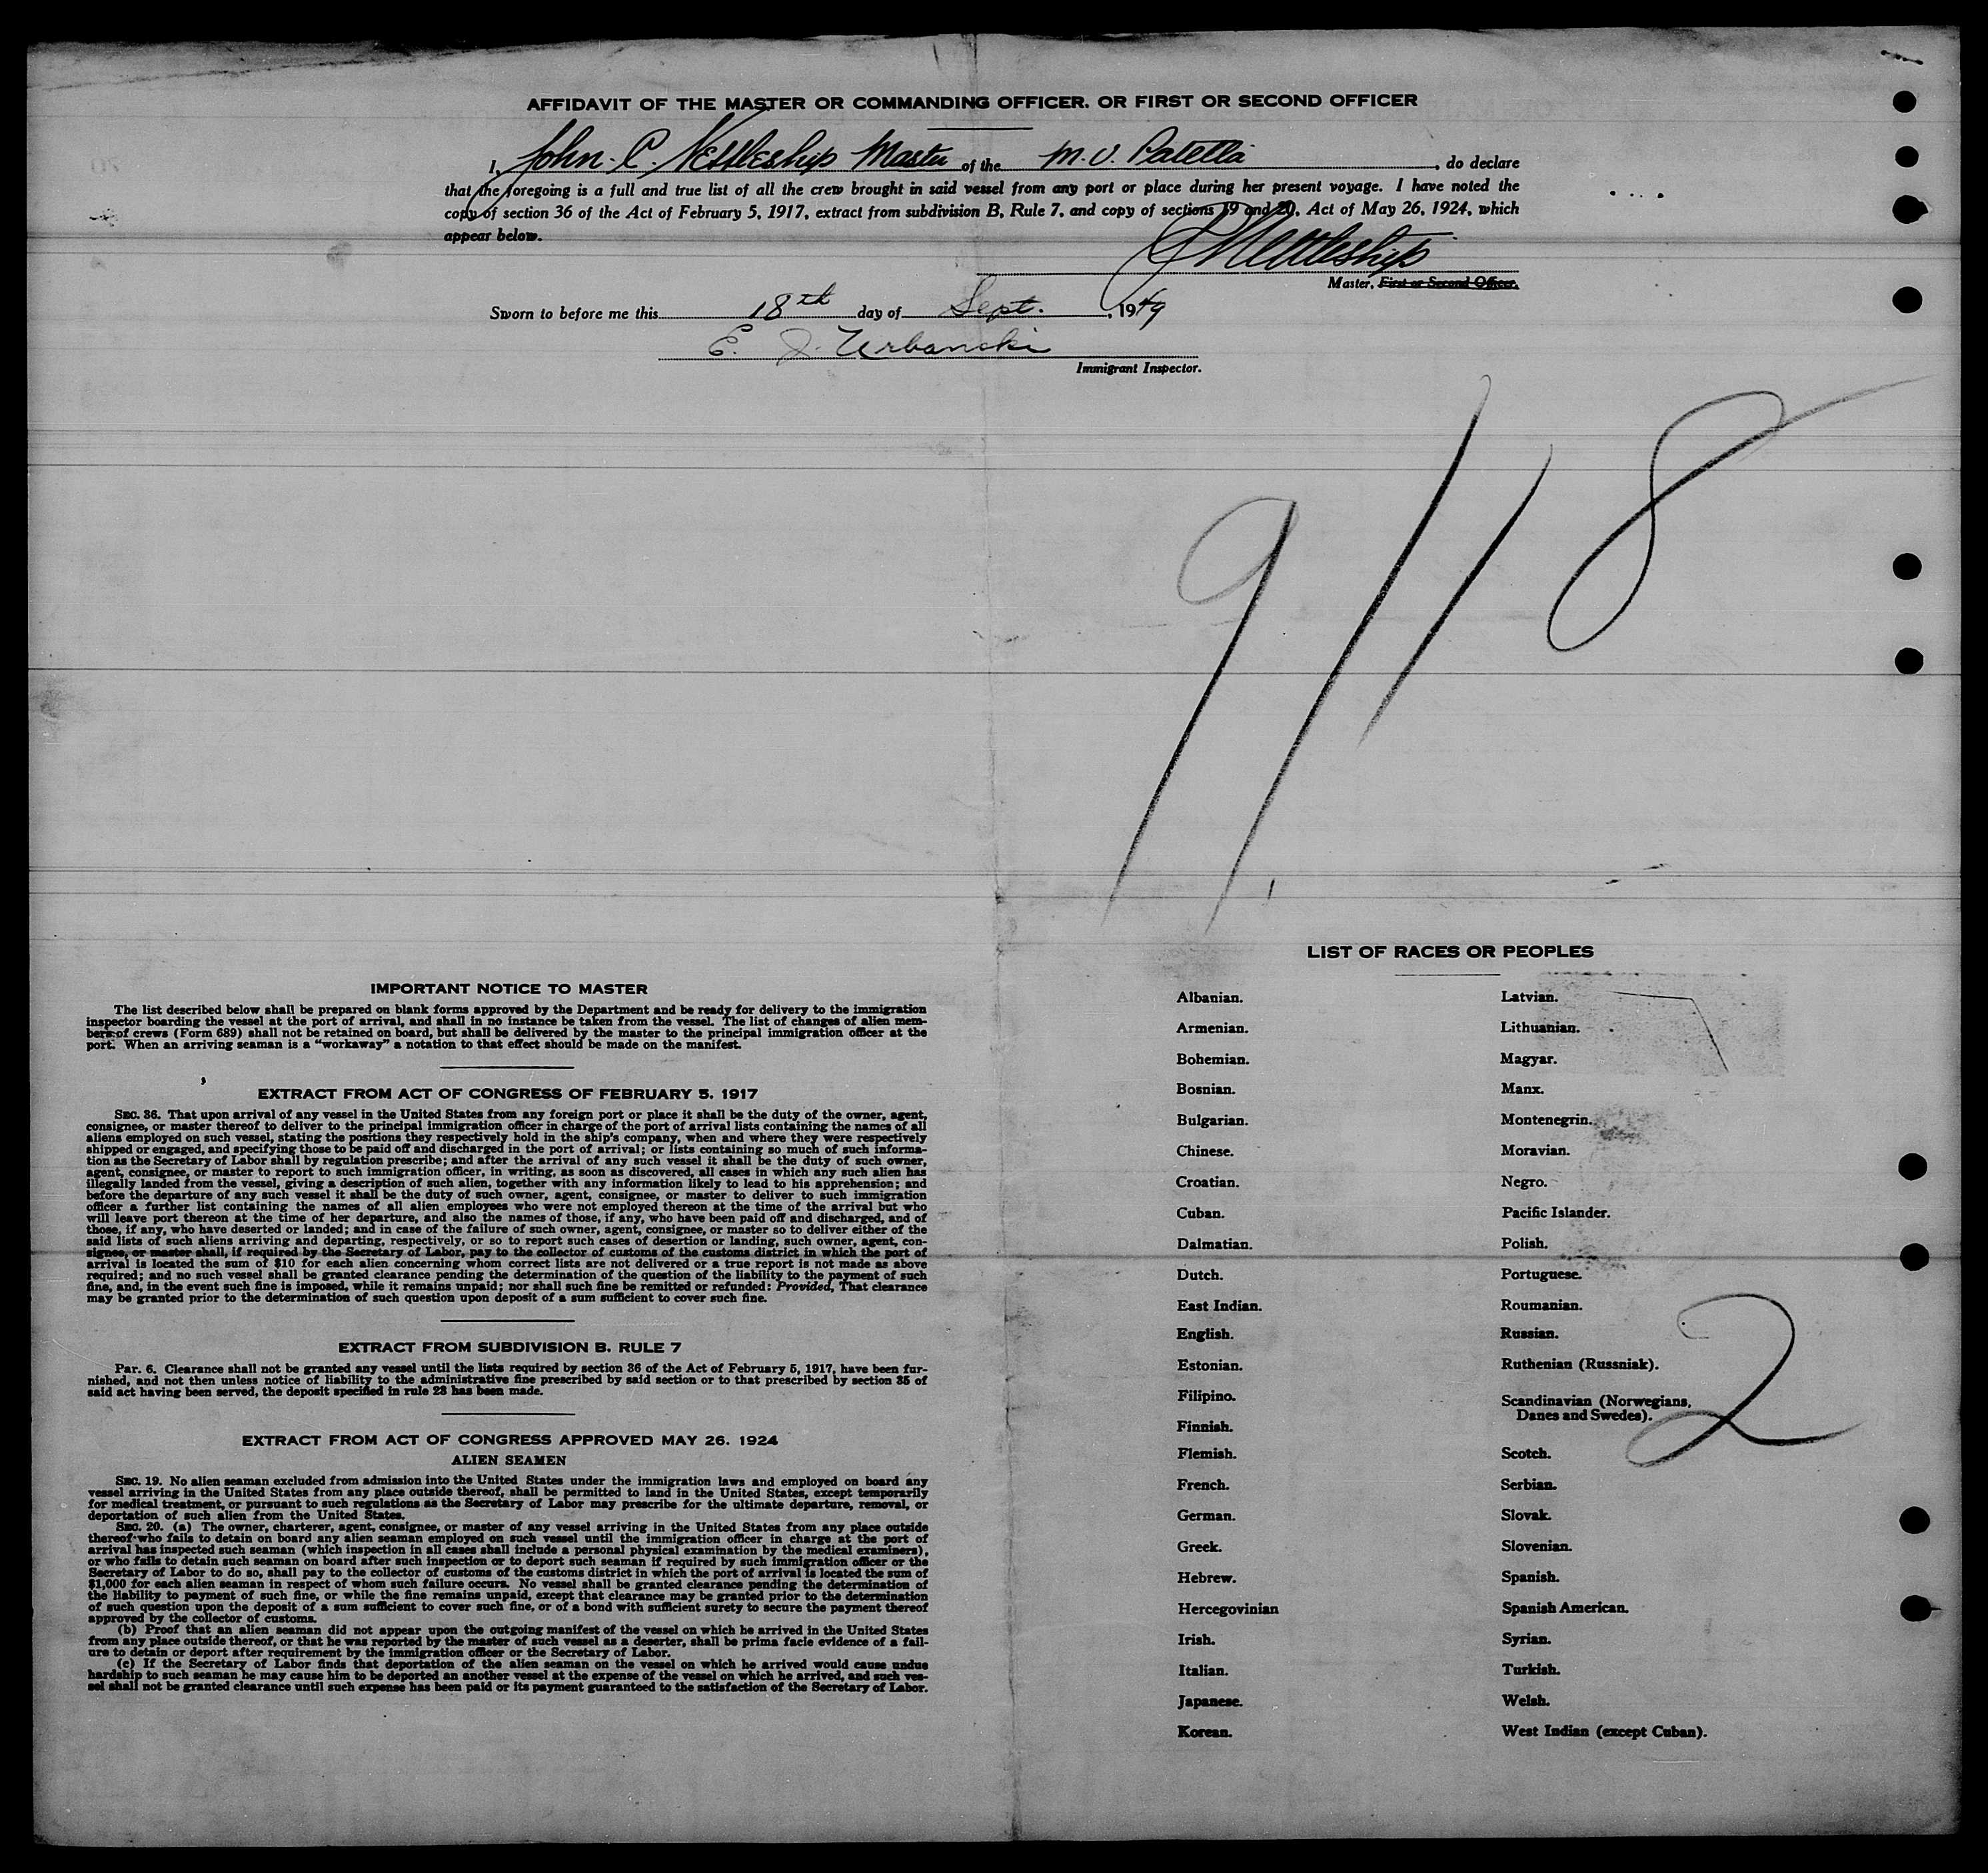 AFFIDAVIT OF THE MASTER OR COMMANDING OFFICER, OR FIRST OR SECOND OFFICER
I, John. C. Nettleship Master of the M.V. Patella, do declare
that the foregoing is a full and true list of all the crew brought in said vessel from any port or place during her present voyage. I have noted the
copy of section 36 of the Act of February 5, 1917, extract from subdivision B, Rule 7, and copy of sections 19 and 20, Act of May 26, 1924, which
appear below.
Nettleship
Master, First or Second Officer.
Sworn to before me this 18th day of Sept., 1949
E. J. Urbanski
Immigrant Inspector.
9/18
IMPORTANT NOTICE TO MASTER
The list described below shall be prepared on blank forms approved by the Department and be ready for delivery to the immigration
inspector boarding the vessel at the port of arrival, and shall in no instance be taken from the vessel. The list of changes of alien mem-
bers of crews (Form 689) shall not be retained on board, but shall be delivered by the master to the principal immigration officer at the
port. When an arriving seaman is a "workaway" a notation to that effect should be made on the manifest.
EXTRACT FROM ACT OF CONGRESS OF FEBRUARY 5, 1917
SEC. 36. That upon arrival of any vessel in the United States from any foreign port or place it shall be the duty of the owner, agent,
consignee, or master thereof to deliver to the principal immigration officer in charge of the port of arrival lists containing the names of all
aliens employed on such vessel, stating the positions they respectively hold in the ship's company, when and where they were respectively
shipped or engaged, and specifying those to be paid off and discharged in the port of arrival; or lists containing so much of such informa-
tion as the Secretary of Labor shall by regulation prescribe; and after the arrival of any such vessel it shall be the duty of such owner,
agent, consignee, or master to report to such immigration officer, in writing, as soon as discovered, all cases in which any such alien has
illegally landed from the vessel, giving a description of such alien, together with any information likely to lead to his apprehension; and
before the departure of any such vessel it shall be the duty of such owner, agent, consignee, or master to deliver to such immigration
officer a further list containing the names of all alien employees who were not employed thereon at the time of the arrival but who
will leave port thereon at the time of her departure, and also the names of those, if any, who have been paid off and discharged, and of
those, if any, who have deserted or landed; and in case of the failure of such owner, agent, consignee, or master so to deliver either of the
said lists of such aliens arriving and departing, respectively, or so to report such cases of desertion or landing, such owner, agent, con-
signee, or master shall, if required by the Secretary of Labor, pay to the collector of customs of the customs district in which the port of
arrival is located the sum of $10 for each alien concerning whom correct lists are not delivered or a true report is not made as above
required; and no such vessel shall be granted clearance pending the determination of the question of the liability to the payment of such
fine, and, in the event such fine is imposed, while it remains unpaid; nor shall such fine be remitted or refunded: Provided, That clearance
may be granted prior to the determination of such question upon deposit of a sum sufficient to cover such fine.
EXTRACT FROM SUBDIVISION B, RULE 7
Par. 6. Clearance shall not be granted any vessel until the lists required by section 36 of the Act of February 5, 1917, have been fur-
nished, and not then unless notice of liability to the administrative fine prescribed by said section or to that prescribed by section 35 of
said act having been served, the deposit specified in rule 28 has been made.
EXTRACT FROM ACT OF CONGRESS APPROVED MAY 26, 1924
ALIEN SEAMEN
SEC. 19. No alien seaman excluded from admission into the United States under the immigration laws and employed on board any
vessel arriving in the United States from any place outside thereof, shall be permitted to land in the United States, except temporarily
for medical treatment, or pursuant to such regulations as the Secretary of Labor may prescribe for the ultimate departure, removal, or
deportation of such alien from the United States.
SEC. 20. (a) The owner, charterer, agent, consignee, or master of any vessel arriving in the United States from any place outside
thereof who fails to detain on board any alien seaman employed on such vessel until the immigration officer in charge at the port of
arrival has inspected such seaman (which inspection in all cases shall include a personal physical examination by the medical examiners),
or who fails to detain such seaman on board after such inspection or to deport such seaman if required by such immigration officer or the
Secretary of Labor to do so, shall pay to the collector of customs of the customs district in which the port of arrival is located the sum of
$1,000 for each alien seaman in respect of whom such failure occurs. No vessel shall be granted clearance pending the determination of
the liability to payment of such fine, or while the fine remains unpaid, except that clearance may be granted prior to the determination
of such question upon the deposit of a sum sufficient to cover such fine, or of a bond with sufficient surety to secure the payment thereof
approved by the collector of customs.
(b) Proof that an alien seaman did not appear upon the outgoing manifest of the vessel on which he arrived in the United States
from any place outside thereof, or that he was reported by the master of such vessel as a deserter, shall be prima facie evidence of a fail-
ure to detain or deport after requirement by the immigration officer or the Secretary of Labor.
(c) If the Secretary of Labor finds that deportation of the alien seaman on the vessel on which he arrived would cause undue
hardship to such seaman he may cause him to be deported an another vessel at the expense of the vessel on which he arrived, and such ves-
sel shall not be granted clearance until such expense has been paid or its payment guaranteed to the satisfaction of the Secretary of Labor.
LIST OF RACES OR PEOPLES
Albanian.
Armenian.
Bohemian.
Bosnian.
Bulgarian.
Chinese.
Croatian.
Cuban.
Dalmatian.
Dutch.
East Indian.
English.
Estonian.
Filipino.
Finnish.
Flemish.
French.
German.
Greek.
Hebrew.
Hercegovinian
Irish.
Italian.
Japanese.
Korean.
Latvian.
Lithuanian.
Magyar.
Manx.
Montenegrin.
Moravian.
Negro.
Pacific Islander.
Polish.
Portuguese.
Roumanian.
Russian.
Ruthenian (Russniak).
Scandinavian (Norwegians,
Danes and Swedes).
Scotch.
Serbian.
Slovak.
Slovenian.
Spanish.
Spanish American.
Syrian.
Turkish.
Welsh.
West Indian (except Cuban).
2